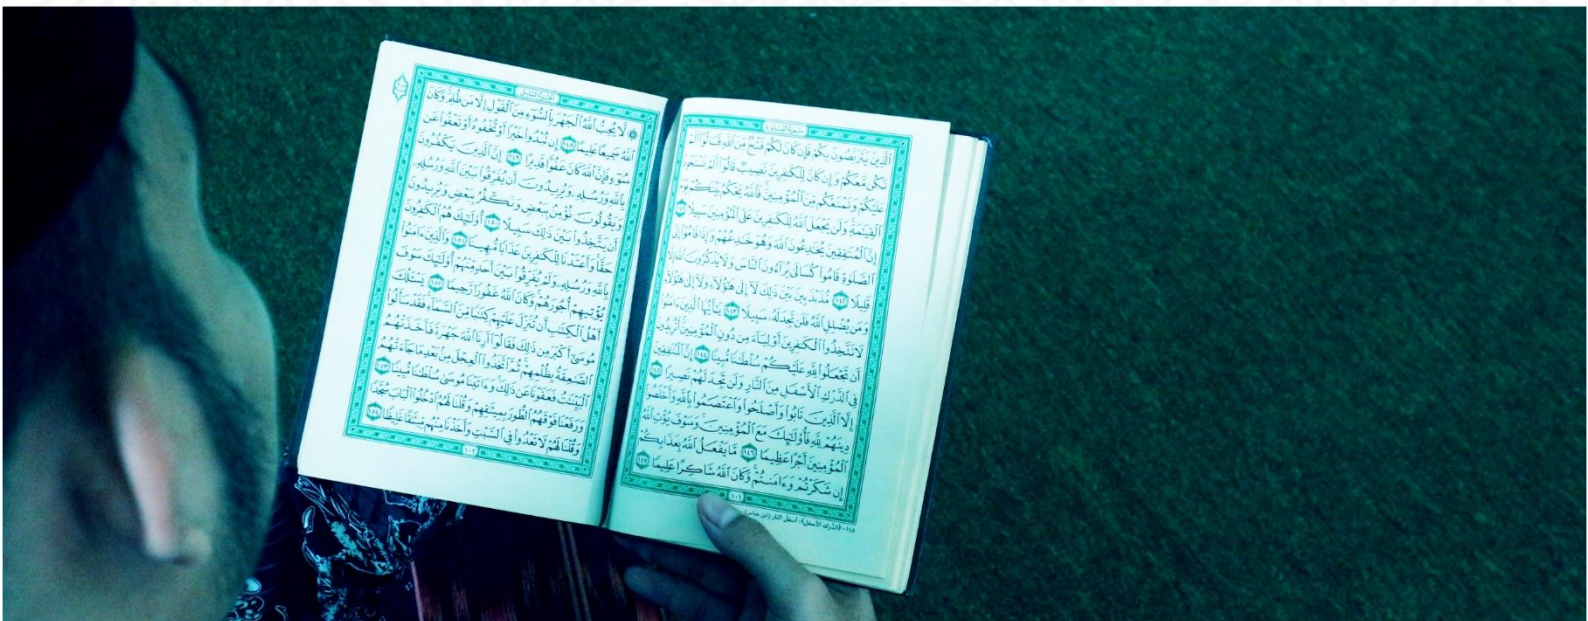 سورة النساء
الذين يتربصون بكم فإن كان لكم فتح من الله قالوا ألم
نكن معكم وإن كان للكفرين نصيب قالوا ألم نستحوذ
عليكم ونمنعكم من المؤمنين فالله يحكم بينكم يوم
القيمة ولن يجعل الله للكفرين على المؤمنين سبيلا ١٤١
إن المنفقين يخدعون الله وهو خدعهم وإذا قاموا إلى
الصلوة قاموا كسالى يراءون الناس ولا يذكرون الله إلا
قليلا ١٤٢ مذبذبين بين ذلك لا إلى هؤلاء ولا إلى هؤلاء
ومن يضلل الله فلن تجد له سبيلا ١٤٣ يأيها الذين ءامنوا
لا تتخذوا الكفرين أولياء من دون المؤمنين أتريدون
أن تجعلوا لله عليكم سلطنا مبينا ١٤٤ إن المنفقين
في الدرك الأسفل من النار ولن تجد لهم نصيرا ١٤٥
إلا الذين تابوا وأصلحوا واعتصموا بالله وأخلصوا
دينهم لله فأولئك مع المؤمنين وسوف يؤت الله
المؤمنين أجرا عظيما ١٤٦ ما يفعل الله بعذابكم
إن شكرتم وءامنتم وكان الله شاكرا عليما ١٤٧
١٠١
١٤٥- (الدرك الأسفل): أسفل النار (ابن عباس)
الجزء السادس
لا يحب الله الجهر بالسوء من القول إلا من ظلم وكان
الله سميعا عليما ١٤٨ إن تبدوا خيرا أو تخفوه أو تعفوا عن
سوء فإن الله كان عفوا قديرا ١٤٩ إن الذين يكفرون
بالله ورسله ويريدون أن يفرقوا بين الله ورسله
ويقولون نؤمن ببعض ونكفر ببعض ويريدون
أن يتخذوا بين ذلك سبيلا ١٥٠ أولئك هم الكفرون
حقا وأعتدنا للكفرين عذابا مهينا ١٥١ والذين ءامنوا
بالله ورسله ولم يفرقوا بين أحد منهم أولئك سوف
يؤتيهم أجورهم وكان الله غفورا رحيما ١٥٢ يسئلك
أهل الكتب أن تنزل عليهم كتبا من السماء فقد سألوا
موسى أكبر من ذلك فقالوا أرنا الله جهرة فأخذتهم
الصعقة بظلمهم ثم اتخذوا العجل من بعد ما جاءتهم
البينت فعفونا عن ذلك وءاتينا موسى سلطنا مبينا ١٥٣
ورفعنا فوقهم الطور بميثقهم وقلنا لهم ادخلوا الباب سجدا
وقلنا لهم لا تعدوا في السبت وأخذنا منهم ميثقا غليظا ١٥٤
١٠٢